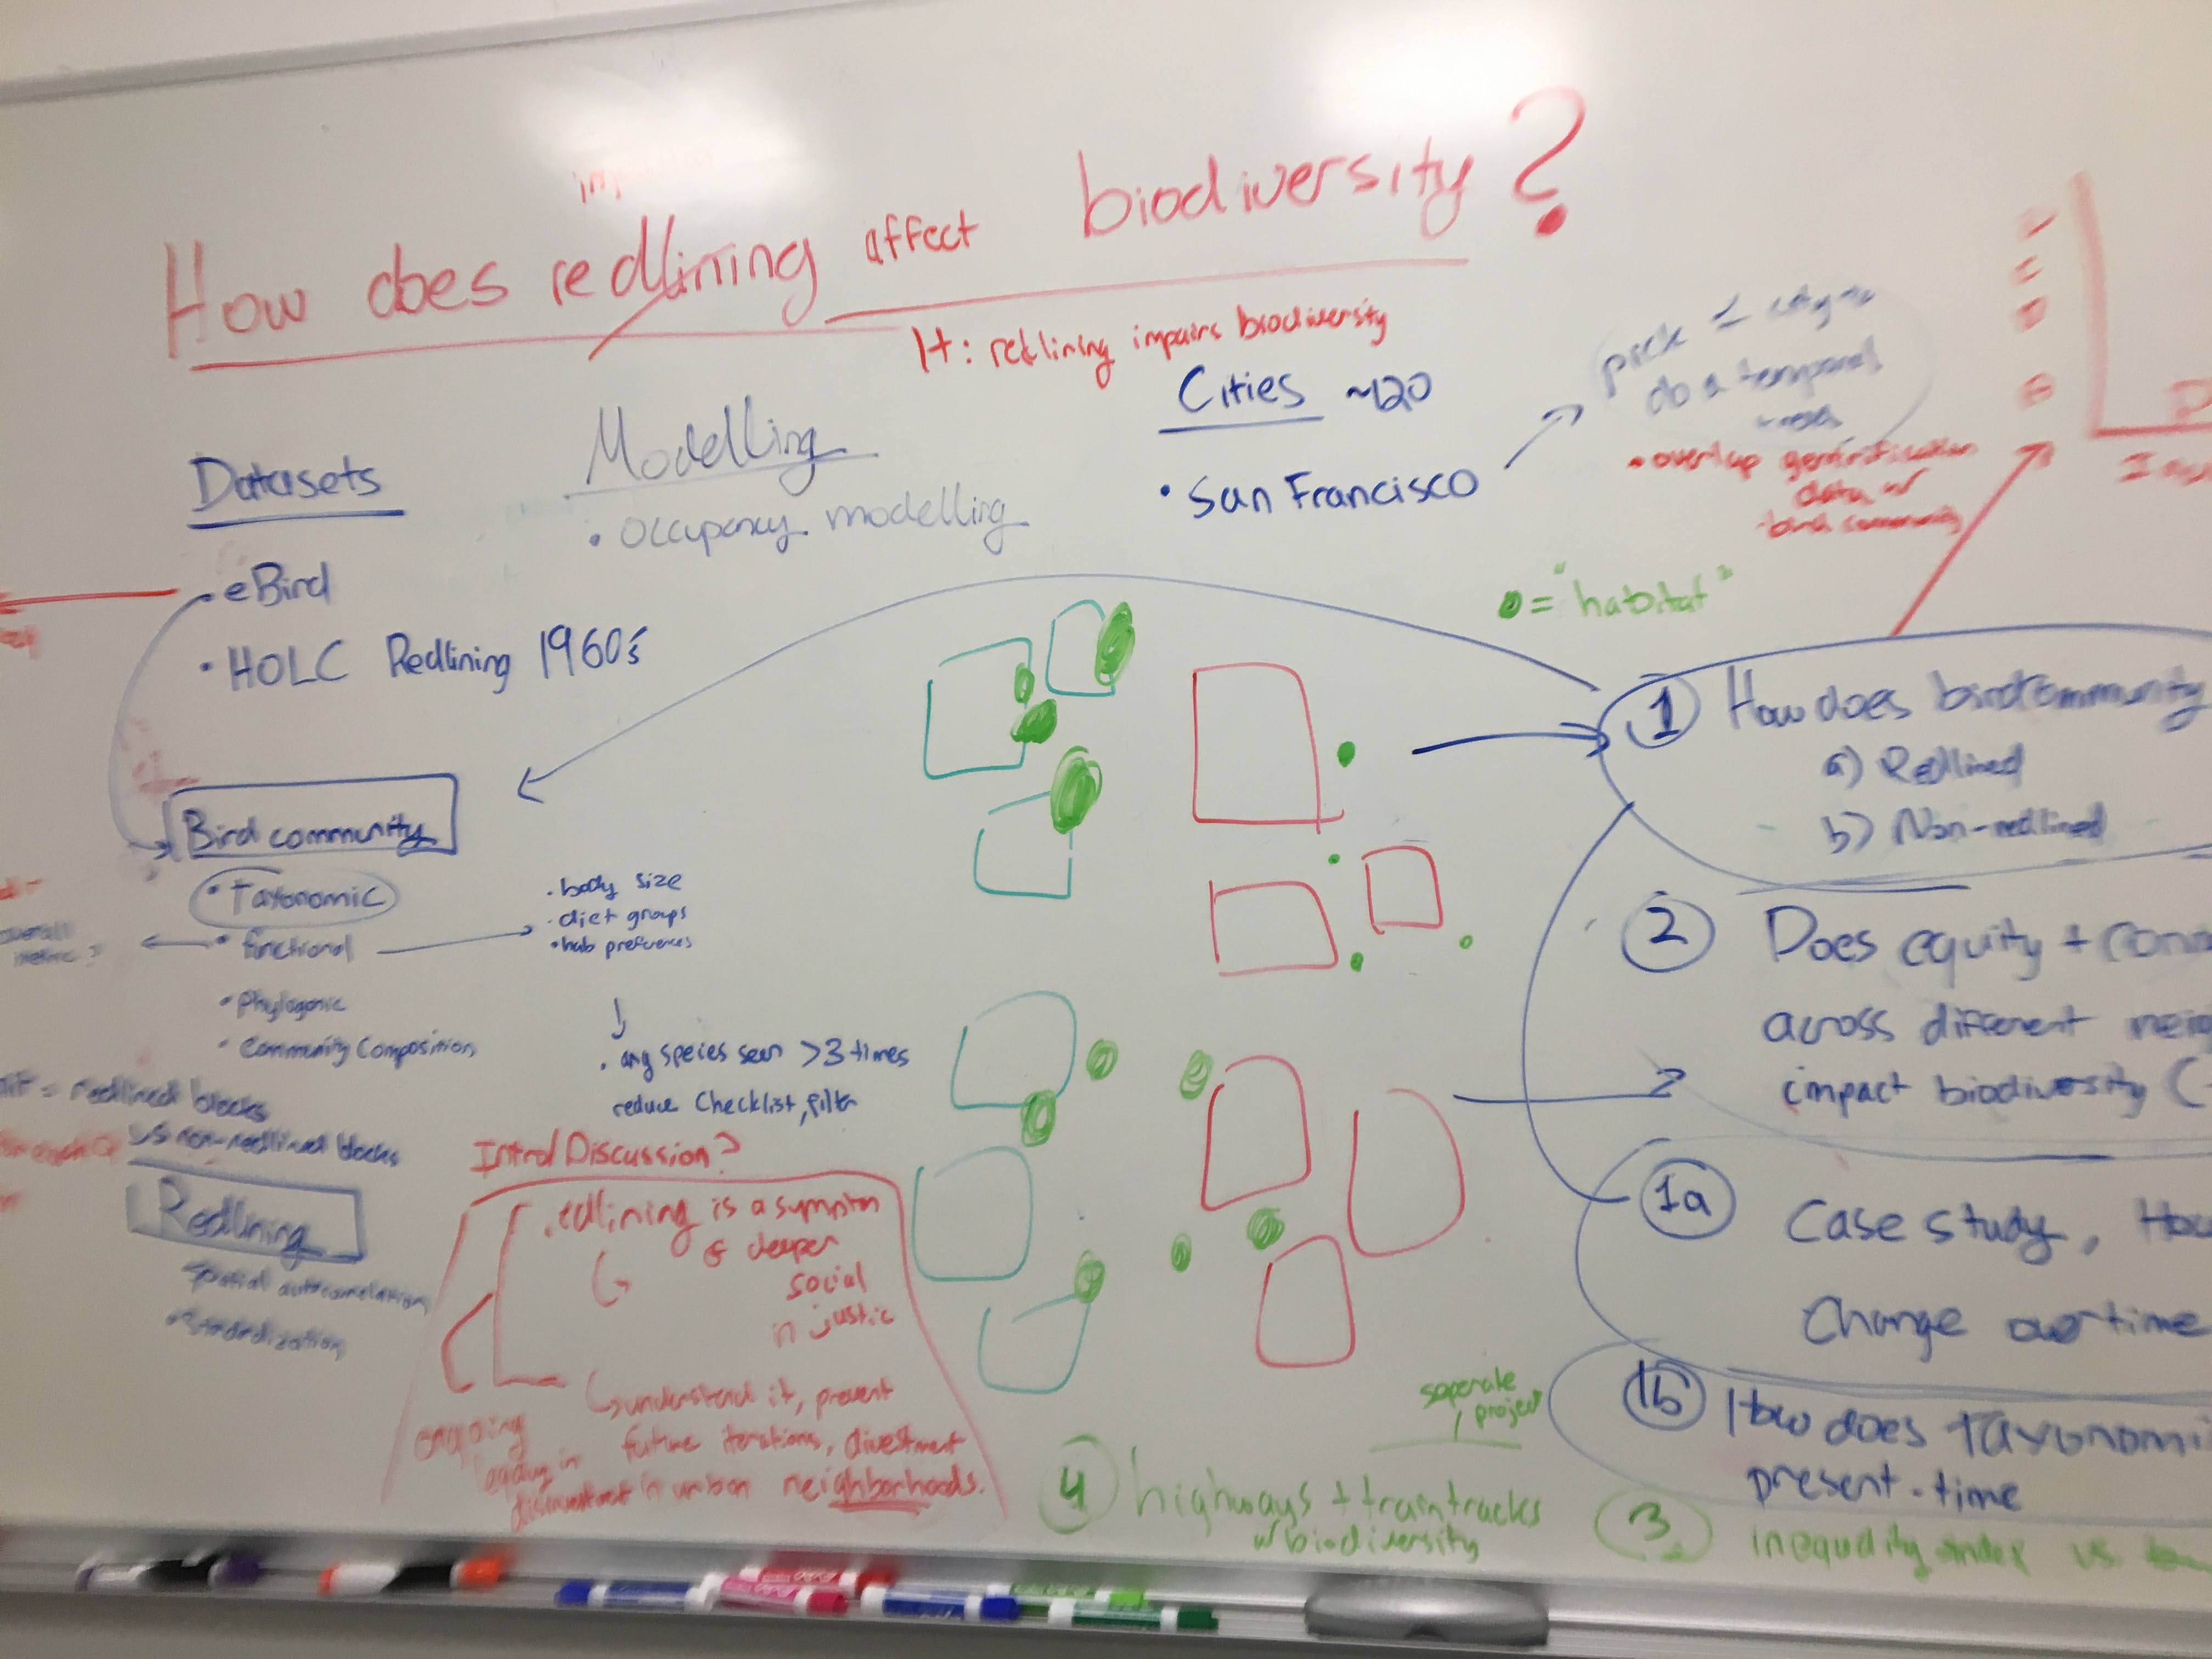 How does redlining affect biodiversity?
H: redlining impairs biodiversity
Datasets
eBird
• HOLC Redlining 1960s
Modelling
• Occupancy modelling
Cities ~120
• San Francisco
pick
do a temporal
• overlap gentrification
data w/
bird community
= "habitat"
Bird community
• Taxonomic
• functional
• Phylogenic
• Community Composition
. body size
. diet groups
• hab preferences
. any species seen >3 times
reduce Checklist, filter
overall
metric ?
= redlined blocks
vs non-redlined blocks
Redlining
Spatial autocorrelation
• Standardization
Intro/Discussion?
. redlining is a symptom
of deeper
social
in justic
understand it, prevent
future iterations, divestment
in urban neighborhoods.
ongoing
legacy in
1 How does bird community
a) Redlined
b) Non-redlined
2 Does equity +
across different
impact biodiversity (
1a Case study, How
Change over time
1b How does Taxonomi
present-time
3 inequality index vs
seperate
project
4 highways + train tracks
w/ biodiversity